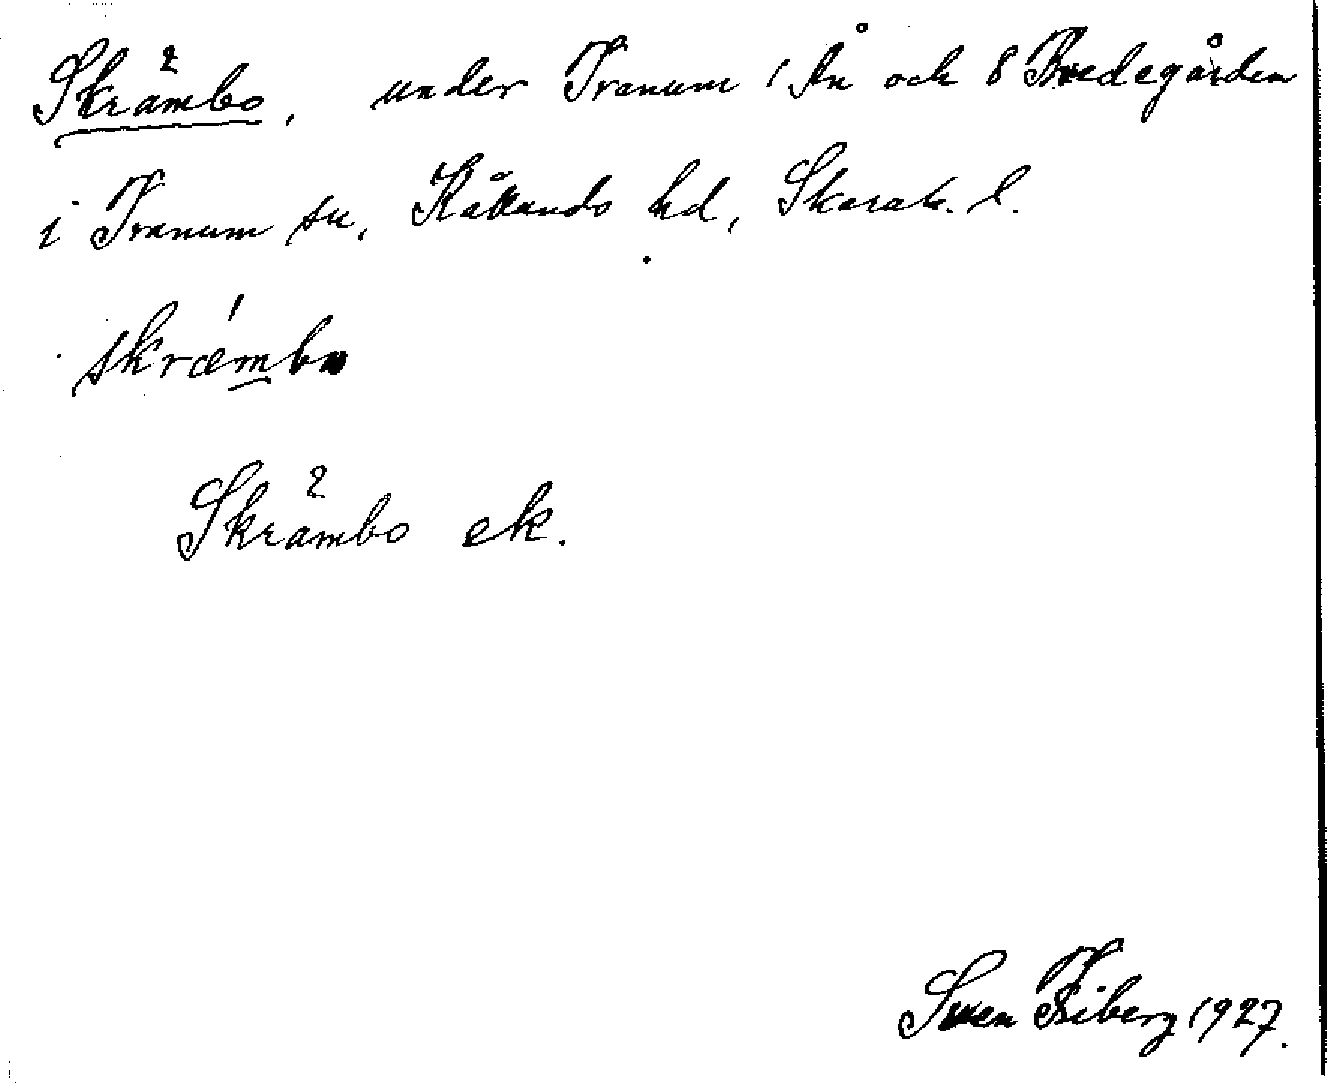 Skrämbo, under Tranum 1 Ån och 8 Bredegården
i Tranum sn, Kållands hd, Skarab. l.
skræ´mbo
Skrämbo ek.
Swen Fiberg 1927.